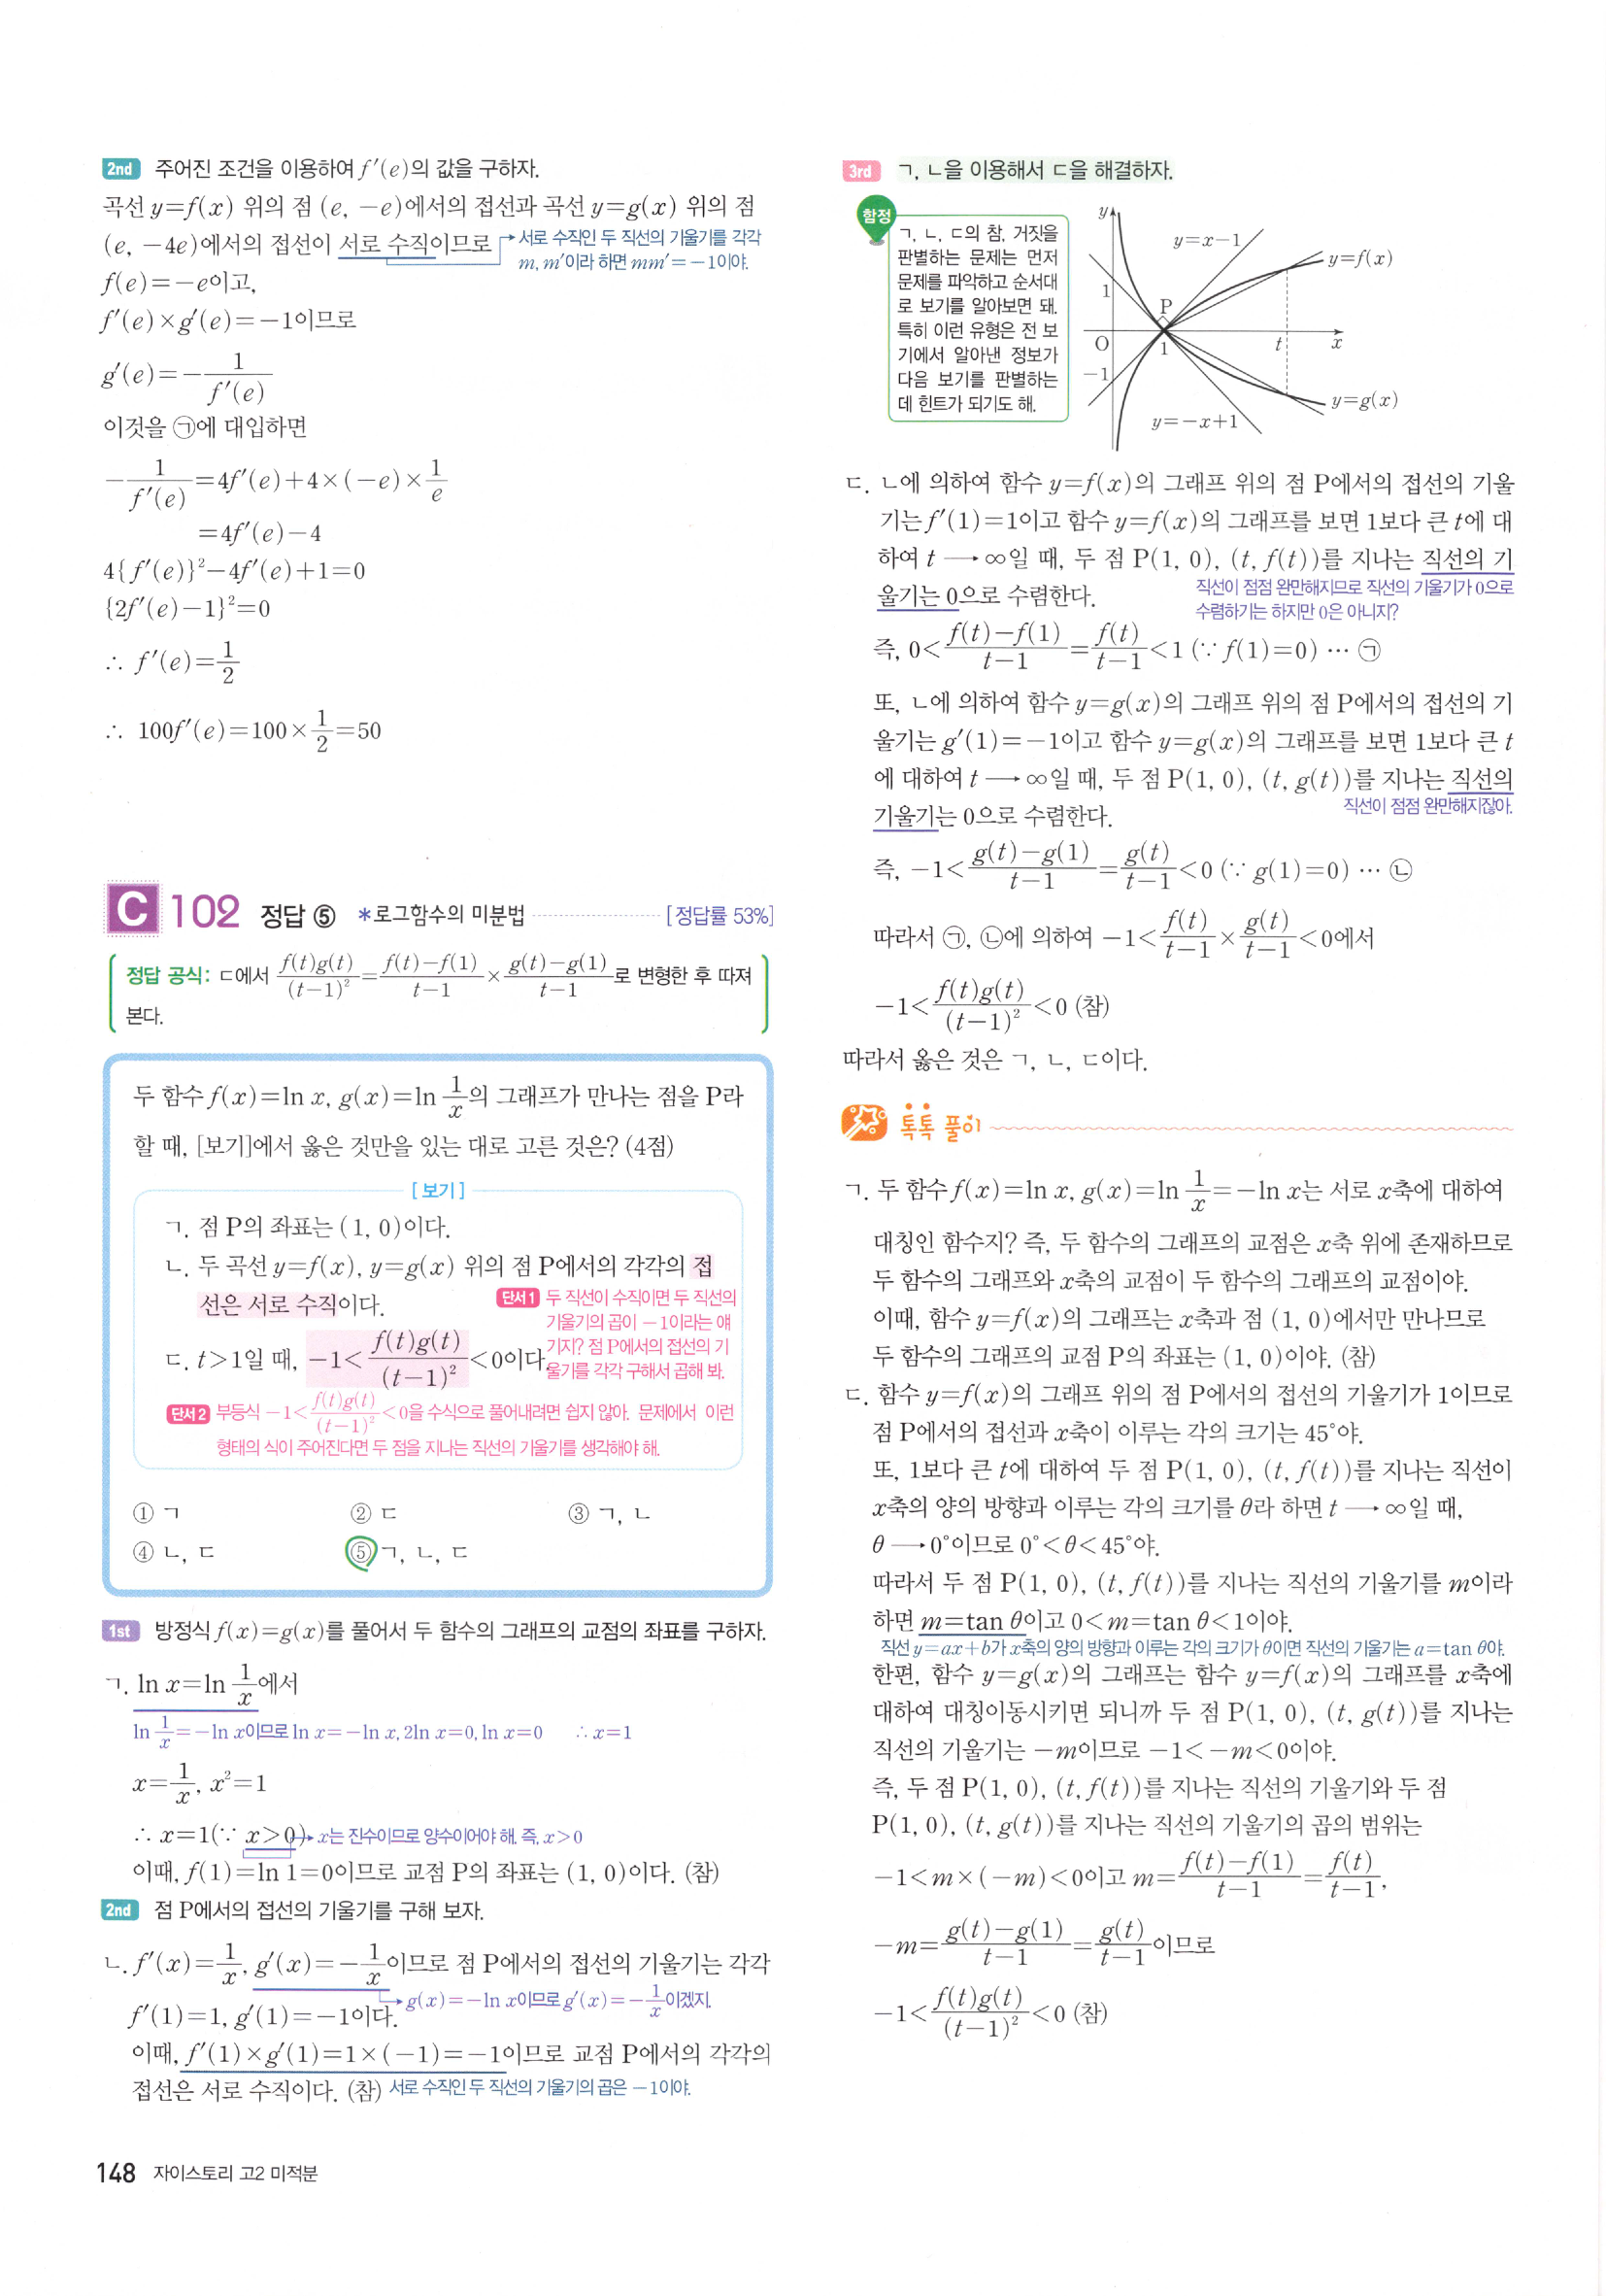 2nd 주어진 조건을 이용하여 f′(e)의 값을 구하자.
곡선 y=f(x) 위의 점 (e, −e)에서의 접선과 곡선 y=g(x) 위의 점
(e, −4e)에서의 접선이 서로 수직이므로
서로 수직인 두 직선의 기울기를 각각
m, m′이라 하면 mm′=−1이야.
f(e)=−e이고,
f′(e)×g′(e)=−1이므로
g′(e)=−1/f′(e)
이것을 ㉠에 대입하면
−1/f′(e)=4f′(e)+4×(−e)×1/e
=4f′(e)−4
4{f′(e)}²−4f′(e)+1=0
{2f′(e)−1}²=0
∴ f′(e)=1/2
∴ 100f′(e)=100×1/2=50
C 102 정답 ⑤ *로그함수의 미분법 [정답률 53%]
정답 공식: ㄷ에서 f(t)g(t)/(t−1)²=f(t)−f(1)/t−1×g(t)−g(1)/t−1로 변형한 후 따져
본다.
두 함수 f(x)=ln x, g(x)=ln 1/x의 그래프가 만나는 점을 P라
할 때, [보기]에서 옳은 것만을 있는 대로 고른 것은? (4점)
[보기]
ㄱ. 점 P의 좌표는 (1, 0)이다.
ㄴ. 두 곡선 y=f(x), y=g(x) 위의 점 P에서의 각각의 접
선은 서로 수직이다.
단서1 두 직선이 수직이면 두 직선의
기울기의 곱이 −1이라는 얘
기지? 점 P에서의 접선의 기
울기를 각각 구해서 곱해 봐.
ㄷ. t>1일 때, −1<f(t)g(t)/(t−1)²<0이다.
단서2 부등식 −1<f(t)g(t)/(t−1)²<0을 수식으로 풀어내려면 쉽지 않아. 문제에서 이런
형태의 식이 주어진다면 두 점을 지나는 직선의 기울기를 생각해야 해.
① ㄱ ② ㄷ ③ ㄱ, ㄴ
④ ㄴ, ㄷ ⑤ ㄱ, ㄴ, ㄷ
1st 방정식 f(x)=g(x)를 풀어서 두 함수의 그래프의 교점의 좌표를 구하자.
ㄱ. ln x=ln 1/x에서
ln 1/x=−ln x이므로 ln x=−ln x, 2ln x=0, ln x=0 ∴ x=1
x=1/x, x²=1
∴ x=1(∵ x>0) x는 진수이므로 양수이어야 해. 즉, x>0
이때, f(1)=ln 1=0이므로 교점 P의 좌표는 (1, 0)이다. (참)
2nd 점 P에서의 접선의 기울기를 구해 보자.
ㄴ. f′(x)=1/x, g′(x)=−1/x이므로 점 P에서의 접선의 기울기는 각각
g(x)=−ln x이므로 g′(x)=−1/x이겠지.
f′(1)=1, g′(1)=−1이다.
이때, f′(1)×g′(1)=1×(−1)=−1이므로 교점 P에서의 각각의
접선은 서로 수직이다. (참) 서로 수직인 두 직선의 기울기의 곱은 −1이야.
148 자이스토리 고2 미적분
3rd ㄱ, ㄴ을 이용해서 ㄷ을 해결하자.
함정
ㄱ, ㄴ, ㄷ의 참, 거짓을
판별하는 문제는 먼저
문제를 파악하고 순서대
로 보기를 알아보면 돼.
특히 이런 유형은 전 보
기에서 알아낸 정보가
다음 보기를 판별하는
데 힌트가 되기도 해.
y
y=x−1
y=f(x)
1
P
O
1
t
x
−1
y=g(x)
y=−x+1
ㄷ. ㄴ에 의하여 함수 y=f(x)의 그래프 위의 점 P에서의 접선의 기울
기는 f′(1)=1이고 함수 y=f(x)의 그래프를 보면 1보다 큰 t에 대
하여 t → ∞일 때, 두 점 P(1, 0), (t, f(t))를 지나는 직선의 기
울기는 0으로 수렴한다.
직선이 점점 완만해지므로 직선의 기울기가 0으로
수렴하기는 하지만 0은 아니지?
즉, 0<f(t)−f(1)/t−1=f(t)/t−1<1 (∵ f(1)=0) … ㉠
또, ㄴ에 의하여 함수 y=g(x)의 그래프 위의 점 P에서의 접선의 기
울기는 g′(1)=−1이고 함수 y=g(x)의 그래프를 보면 1보다 큰 t
에 대하여 t → ∞일 때, 두 점 P(1, 0), (t, g(t))를 지나는 직선의
기울기는 0으로 수렴한다.
직선이 점점 완만해지잖아.
즉, −1<g(t)−g(1)/t−1=g(t)/t−1<0 (∵ g(1)=0) … ㉡
따라서 ㉠, ㉡에 의하여 −1<f(t)/t−1×g(t)/t−1<0에서
−1<f(t)g(t)/(t−1)²<0 (참)
따라서 옳은 것은 ㄱ, ㄴ, ㄷ이다.
톡톡 풀이
ㄱ. 두 함수 f(x)=ln x, g(x)=ln 1/x=−ln x는 서로 x축에 대하여
대칭인 함수지? 즉, 두 함수의 그래프의 교점은 x축 위에 존재하므로
두 함수의 그래프와 x축의 교점이 두 함수의 그래프의 교점이야.
이때, 함수 y=f(x)의 그래프는 x축과 점 (1, 0)에서만 만나므로
두 함수의 그래프의 교점 P의 좌표는 (1, 0)이야. (참)
ㄷ. 함수 y=f(x)의 그래프 위의 점 P에서의 접선의 기울기가 1이므로
점 P에서의 접선과 x축이 이루는 각의 크기는 45°야.
또, 1보다 큰 t에 대하여 두 점 P(1, 0), (t, f(t))를 지나는 직선이
x축의 양의 방향과 이루는 각의 크기를 θ라 하면 t → ∞일 때,
θ → 0°이므로 0°<θ<45°야.
따라서 두 점 P(1, 0), (t, f(t))를 지나는 직선의 기울기를 m이라
하면 m=tan θ이고 0<m=tan θ<1이야.
직선 y=ax+b가 x축의 양의 방향과 이루는 각의 크기가 θ이면 직선의 기울기는 a=tan θ야.
한편, 함수 y=g(x)의 그래프는 함수 y=f(x)의 그래프를 x축에
대하여 대칭이동시키면 되니까 두 점 P(1, 0), (t, g(t))를 지나는
직선의 기울기는 −m이므로 −1<−m<0이야.
즉, 두 점 P(1, 0), (t, f(t))를 지나는 직선의 기울기와 두 점
P(1, 0), (t, g(t))를 지나는 직선의 기울기의 곱의 범위는
−1<m×(−m)<0이고 m=f(t)−f(1)/t−1=f(t)/t−1,
−m=g(t)−g(1)/t−1=g(t)/t−1이므로
−1<f(t)g(t)/(t−1)²<0 (참)